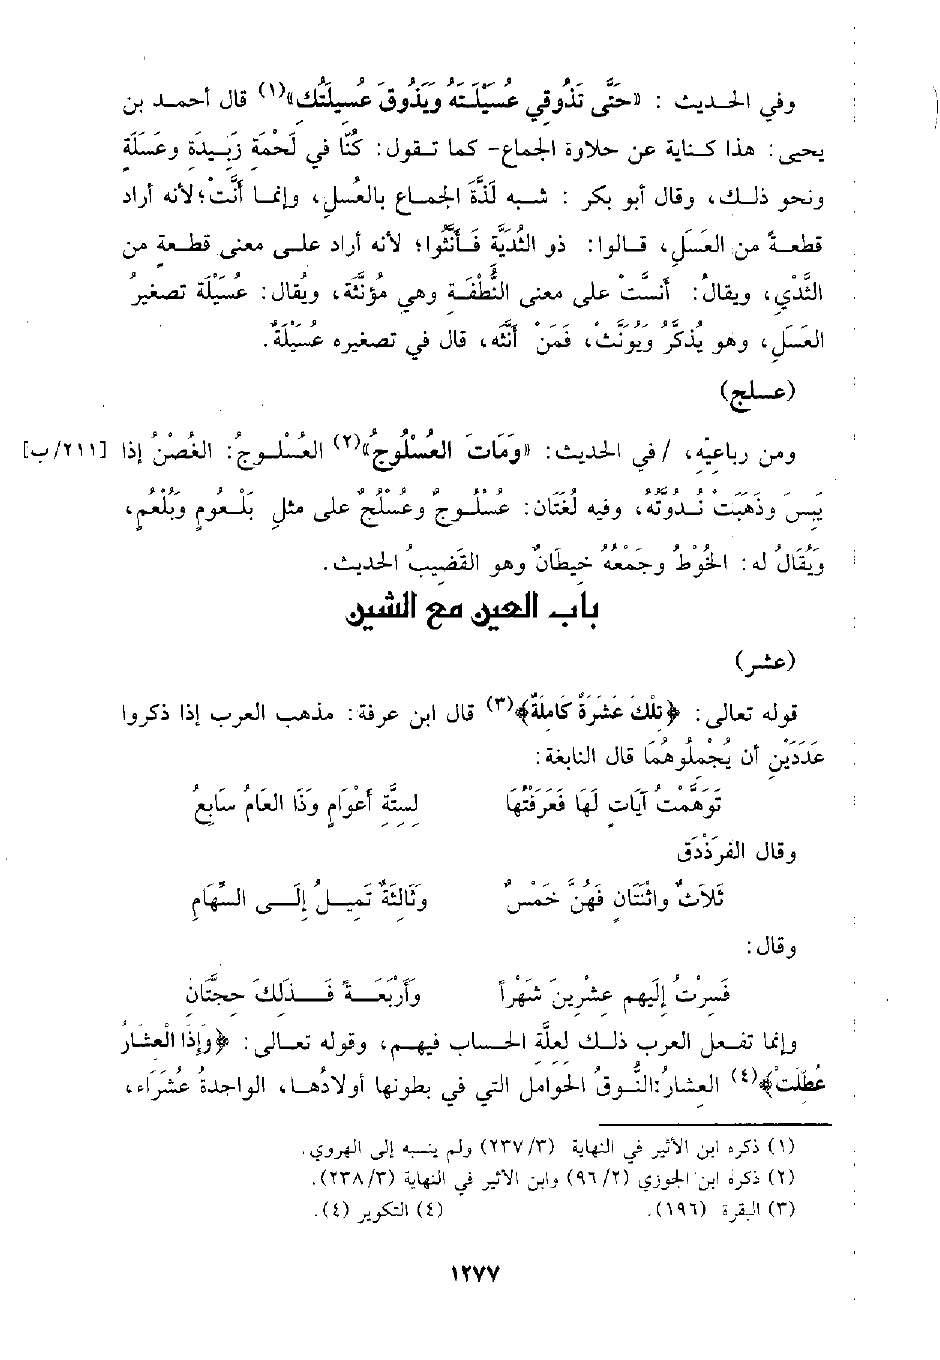 وفي الحديث : «حَتَّى تَذُوقِي عُسَيْلَتَهُ وَيَذُوقَ عُسَيلَتَك»(١) قال أحمد بن
يحيى: هذا كناية عن حلاوة الجماع- كما تقول: كُنَّا في لَحْمَة نَبِيذَة وعَسَلَة
ونحو ذلك، وقال أبو بكر : شبه لَذَّةَ الجماع بالعَسل، وإنما أنَّثَ؛ لأنه أراد
قطعةً من العَسَل، قالوا: ذو الثُديَّة فَأنَّثوا؛ لأنه أراد على معنى قطعة من
الثَّدْي، ويقالُ: أنَّثَ على معنى النُّطْفَة وهي مؤنَّثَة، ويُقال: عُسَيْلَة تصغيرُ
العَسَل، وهو يُذكَّرُ ويُؤنَّث، فَمَنْ أنَّثَه، قال في تصغيره عُسَيْلَةٌ.
(عسلج)
ومن رباعيِّه، / في الحديث: «وَمَاتَ العُسْلُوجُ»(٢) العُسْلوجُ: الغُصْنُ إذا [٢١١/ب]
يَبِسَ وذَهَبَتْ نُدُوَّتُه، وفيه لُغَتَان: عُسْلوجٌ وعُسْلُجٌ على مثلِ بَلْعومٍ وبُلْعمٍ،
ويُقَالُ له: الخُوْطُ وجَمْعُهُ خيطَانٌ وهو القَضِيبُ الحديث.
باب العين مع الشين
(عشر)
قوله تعالى: ﴿تلْكَ عَشَرَةٌ كَامِلَةٌ﴾(٣) قال ابن عرفة: مذهب العرب إذا ذكروا
عَدَدَيْنِ أن يُجْمِلُوهُمَا قال النابغة:
تَوَهَّمْتُ آيَاتٍ لَهَا فَعَرَفْتُهَا لِستَّةِ أعْوَامٍ وَذَا العَامُ سَابِعُ
وقال الفَرَذْدَق
ثَلَاثٌ واثْنَتَانِ فَهُنَّ خَمْسٌ وَثَالِثَةٌ تَمِيلُ إلَى السِّهَامِ
وقال:
فَسِرْتُ إلَيهِم عشْرِينَ شَهْراً وَأَرْبَعَةً فَذلِكَ حجَّتَان
وإنما تفعل العرب ذلك لعلة الحساب فيهم، وقوله تعالى: ﴿وَإذَا الْعشَارُ
عُطِّلَتْ﴾(٤) العشارُ: النُّوقُ الحوامل التي في بطونها أولادُها، الواحدةُ عُشَرَاء،
(١) ذكره ابن الأثير في النهاية (٣/ ٢٣٧) ولم ينسبه إلى الهروي.
(٢) ذكره ابن الجوزي (٢/ ٩٦) وابن الأثير في النهاية (٣/ ٢٣٨).
(٣) البقرة (١٩٦). (٤) التكوير (٤).
١٢٧٧